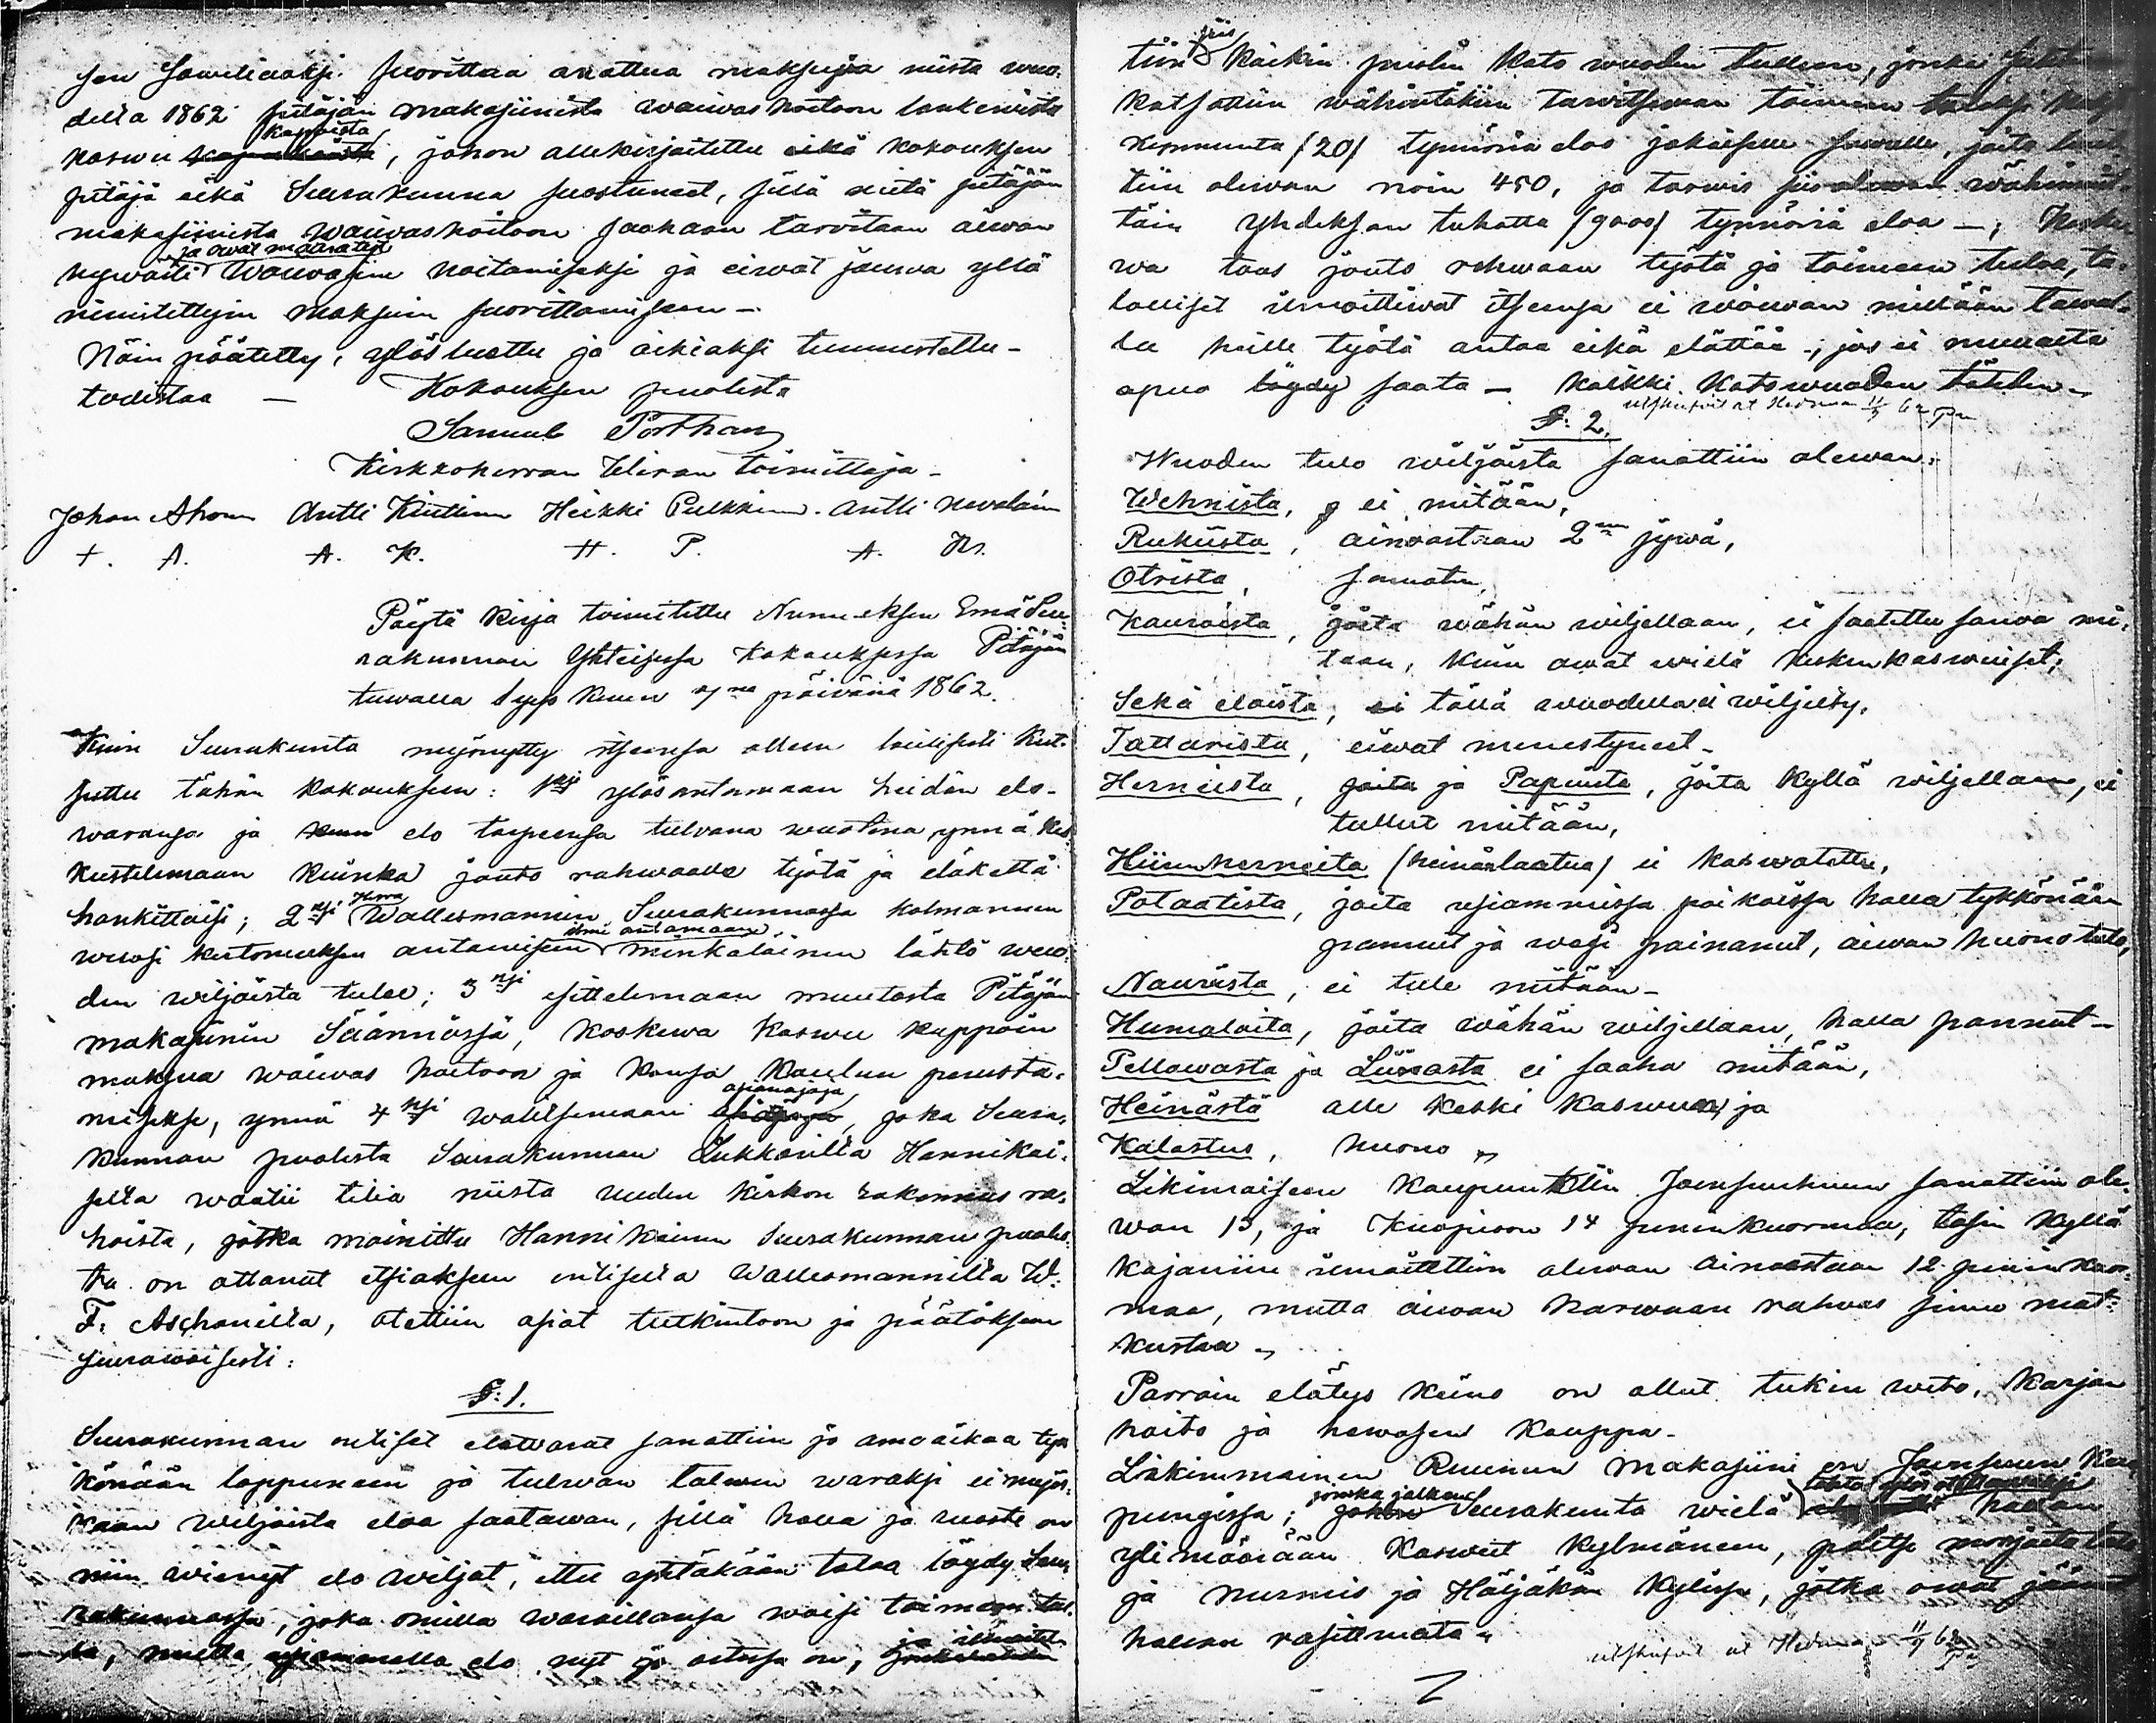 sen Soweliaaksi suorittaa anottua maksujia niistä wuo-
della 1862 pitäjän makasiinista waiwashoitoon laukeniista
kaswu kapoista, johon allekirjoitettu eikä kokouksen
pitäjä eikä Seurakunna suostuneet, sillä siitä pitäjän
makasiinista waiwashoitoon saahaan tarvitaan aiwan
ja owat määrätyt
hywästi waiwasten hoitamiseksi ja eiwät jouwa yllä
nimitettyin maksuin suorittamiseen —
Näin päätetty, ylösluettu ja oikiaksi tunnustettu —
todistaa — Kokouksen puolesta
Samuel Porthan
Kirkkoherran Wiran toimittaja —
Johan Ahonen Antti Kiittinen Heikki Pulkkinen. Antti Nevalain
+. A. A. K. H. P. A. N.
Pöytä kirja toimitettu Nurmeksen Emä Seu-
rakunnan Yhteisessä Kokouksessa Pitäjän
tuwalla Syys kuun 7nä päivänä 1862.
Kuin Seurakunta myönytty itsensä olleen laillisesti kut-
suttu tähän kokoukseen: 1ksi ylösantamaan heidän elo-
waransa ja elo tarpeensa tulevana wuotena ynnä kes-
kustelemaan kuinka jouto rahwaalle työtä ja elakettä
hankittaisi; 2ksi Herra Wallesmannin Seurakunnassa kolmannen
wuosi kertomuksen antamiseen ilmi antamaan minkälainen lähtö wuo-
den wiljoista tulee; 3ksi esittelemaan muutosta Pitäjän
makasiinin Säännössä, koskewa Kaswu kappoin
maksua waiwas hoitoon ja kansa Koulun perusta-
miseksi, ynnä 4ksi walitsemaan asianajaja, joka Seura-
kunnan puolesta Seurakunnan Lukkarilta Hannikai-
selta waatii tiliä niistä uuden kirkon rakennus ra-
hoista, jotka mainittu Hannikainen Seurakunnan puoles-
ta on ottanut etsiakseen entiseltä Wallesmannilta W:
F. Aschanilta, otettiin asiat tutkintoon ja päätökseen
seurawaisesti:
§: 1.
Seurakunnan entiset elowarat sanottiin jo amoaikaa tyk-
könään loppuneen ja tulewan talwen waraksi ei myös-
kään wiljoista eloa saatawan, sillä halla ja ruoste on
niin wienyt elo wiljat, ettei yhtäkään taloa löydy Seu-
rakunnassa, joka omilla waroillansa woisi toimeen tul-
la, mutta usiammalla elo nyt jo ostossa on, ja ilmoitet-
tiin siis kaikin puolin kato wuoden tulleen, jonka
katsottiin wähintäkiin tarwitsewan toimeen
kymmentä /20/ tynnöriä eloa jokaiselle sawulle, joita luet-
tiin olewan noin 450, ja tarwis siis olewan wähimmäs-
täin Yhdeksän tuhatta /9000/ tynnöriä eloa —; koske-
wa taas jouto rahwaan työtä ja toimeen tuloa, ta-
lolliset ilmoittiwat itsensä ei woiwan millään tawal-
la heille työtä antaa eikä elättää —, jos ei muualta
apua löydy saata — kaikki Kato wuoden tähden —
utskrifvit at Hedman 11/9 62
§: 2.
Wuoden tulo wiljoista sanottiin olewan:
Wehnistä, ei mitään,
Rukiista, ainoastaan 2nen jywä,
Otrista, samaten,
Kauroista, joita wähän wiljellaan, ei saatettu sanoa mi-
tään, kuin owat wielä keskenkaswuiset;
Sekä eloista, ei tällä wuodella ei wiljelty.
Tattarista, eiwät menestyneet —
Herneistä, joita ja Papuista, joita kyllä wiljellaan, ei
tullut mitään,
Hiirenherneitä (heinänlaatua) ei kaswatettu,
Potaatista, joita usiammissa paikoissa halla tykkönään
pannut ja wesi painanut, aiwan huono tulo,
Nauriista, ei tule mitään —
Humaloita, joita wähän wiljellaan, halla pannut —
Pellawasta ja Liinasta ei saaha mitään,
Heinästä alle keski kaswun ja
Kalastus, huono —
Likimaiseen kaupunkiin Joensuuhun sanottiin ole-
wan 13, ja Kuopioon 14 penenkuormaa, tosin kyllä
Kajaniin ilmoitettiin olewan ainoastaan 12 peninkuor-
maa, mutta aiwan harwaan rahwas sinne mat-
kustaa —
Parrain elätys keino on ollut tukin weto, karjan
hoito ja hewosen kauppa —
Likimmainen Ruunun makasiini on Joensuun Kau-
pungissa; jonka jälkeen Seurakunta wielä hallan
yli määrään Kaswut kylmäneen, paitse
ja Nurmis ja Höljäkän kylissä, jotka owat jäänet
hallan rasittmata —
utskrifvit at Hedman 11/9 62